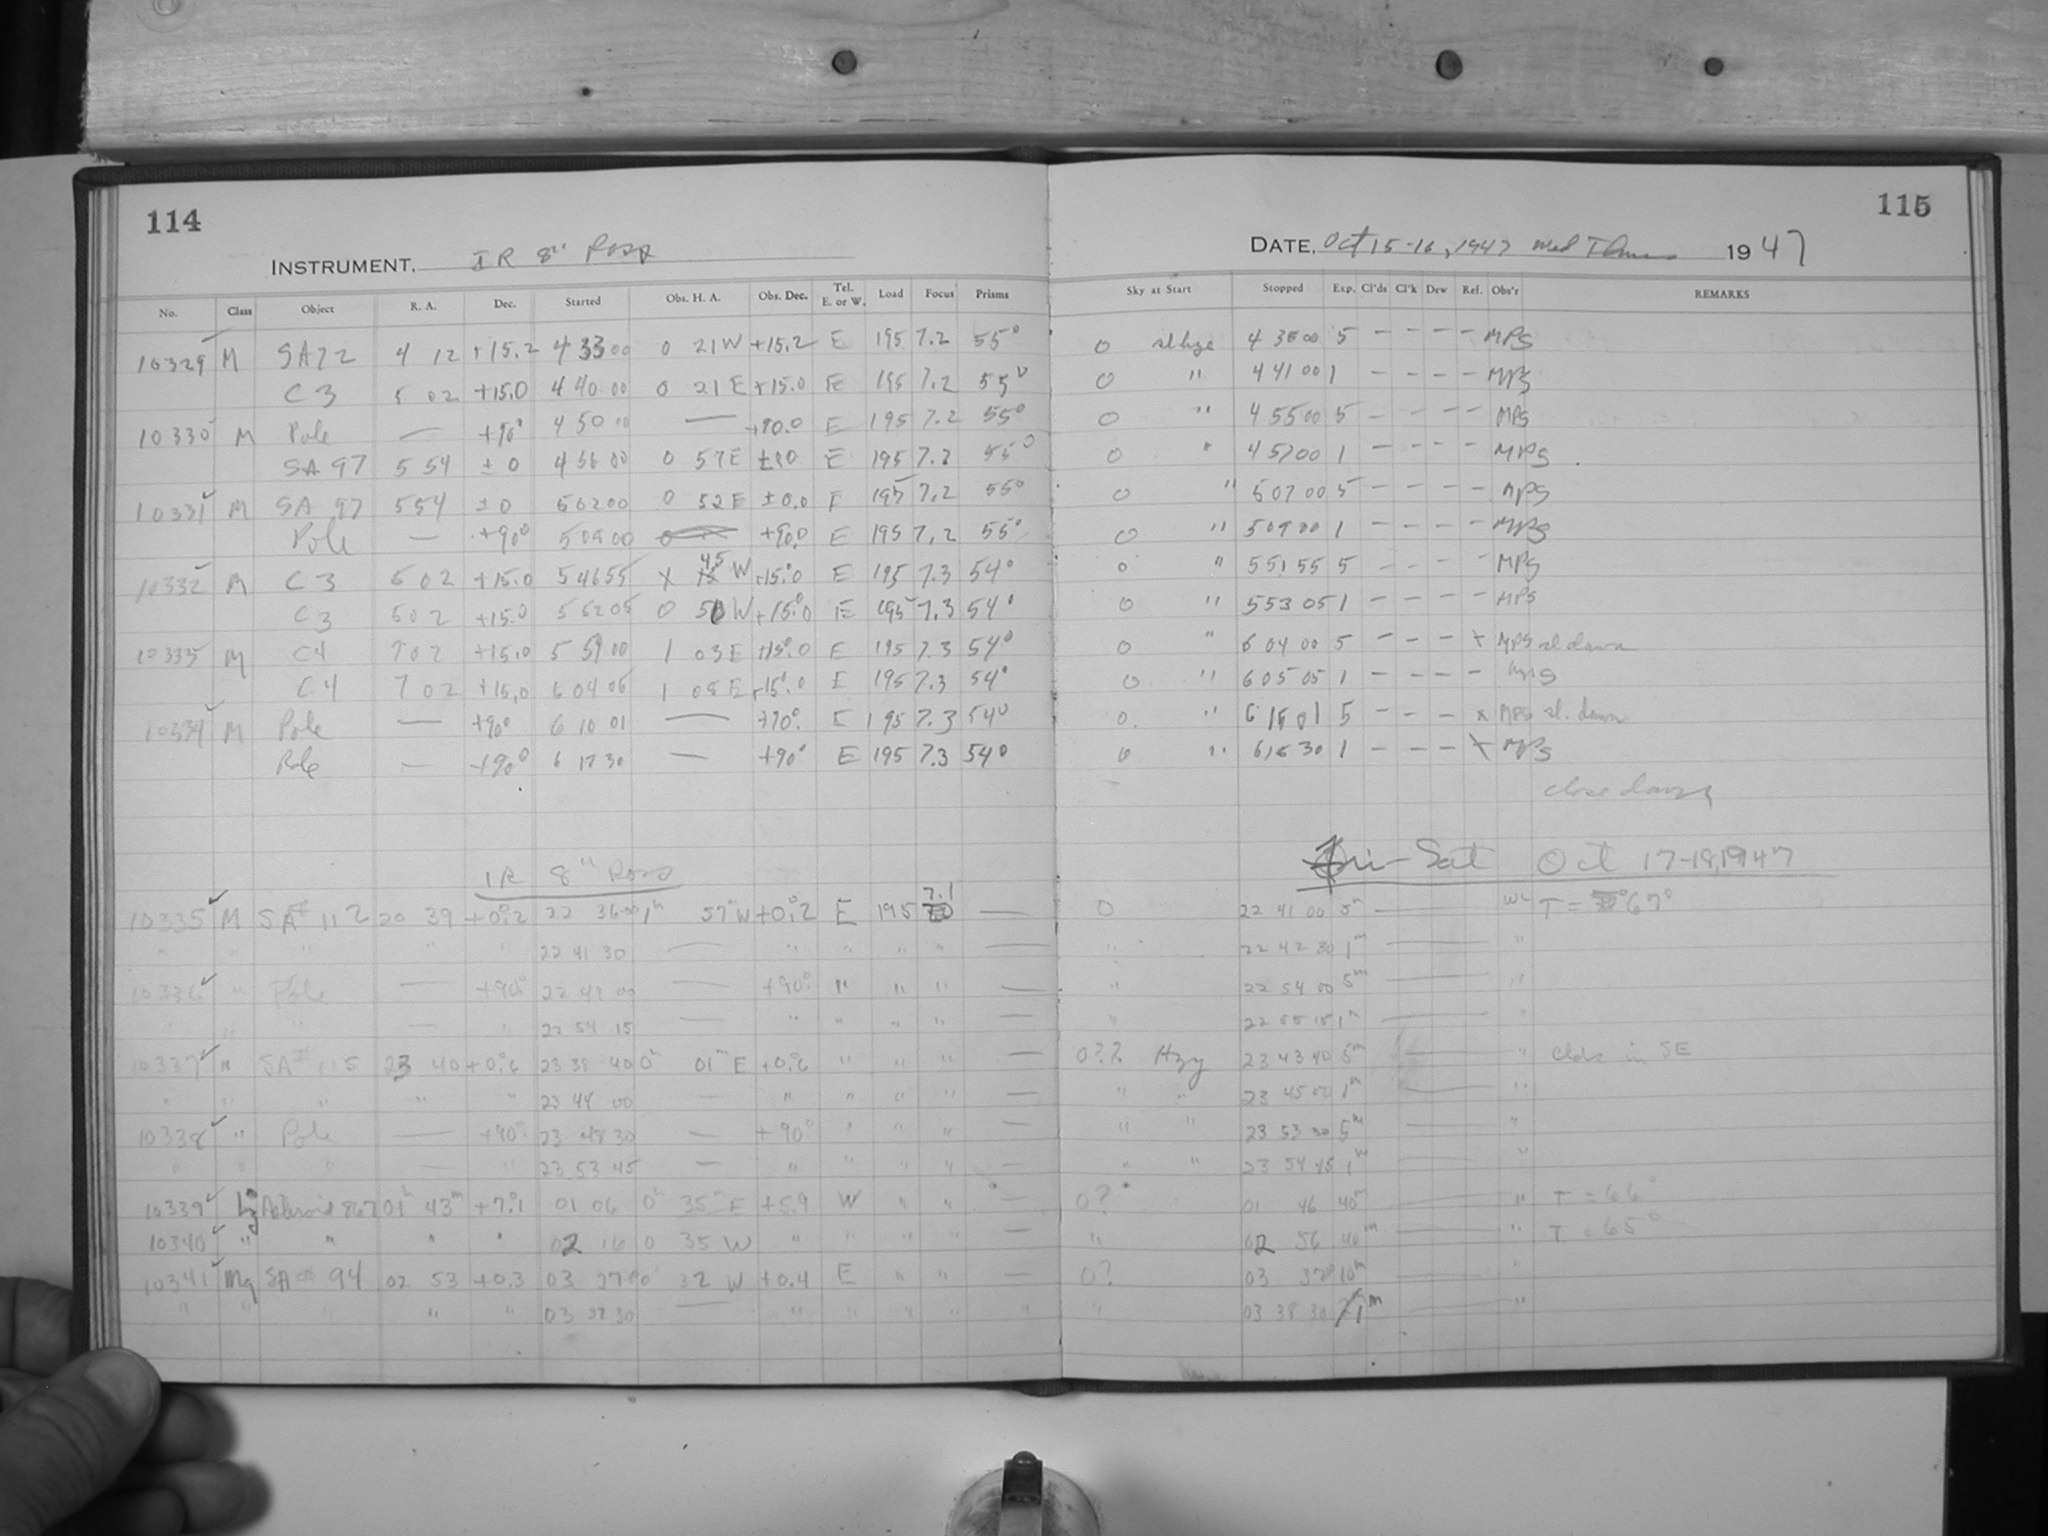 114
INSTRUMENT, IR 8" Ross
No. Class Object R. A. Dec. Started Obs. H. A. Obs. Dec. Tel. E. or W. Load Focus Prisms
10329 M SA72 4 12 +15.2 4 33 00 0 21 W +15.2 E 195 7.2 55°
C 3 5 02 +15.0 4 40 00 0 21 E +15.0 E 195 7.2 55°
10330 M Pole — +90° 4 50 00 — +90.0 E 195 7.2 55°
SA 97 5 54 ± 0 4 56 00 0 57 E ±00 E 195 7.2 55°
10331 M SA 97 5 54 ± 0 5 02 00 0 52 E ±0.0 E 195 7.2 55°
Pole — +90° 5 09 00 +90.0 E 195 7.2 55°
10332 M C 3 5 02 +15.0 5 46 55 X 45 W +15.0 E 195 7.3 54°
C 3 5 02 +15.0 5 52 05 0 50 W +15.0 E 195 7.3 54°
10333 M C4 7 02 +15.0 5 59 00 1 03 E +15.0 E 195 7.3 54°
C4 7 02 +15.0 6 04 05 1 08 E +15.0 E 195 7.3 54°
10334 M Pole — +90° 6 10 01 — +90° E 195 7.3 54°
Pole — +90° 6 17 30 — +90° E 195 7.3 54°
IR 8" Ross
10335 M SA 112 20 39 +0.2 22 36 00 1h 57 W +0.2 E 195 7.1 —
" " " " " 22 41 30 — " " " " —
10336 " Pole — +90° 22 49 00 — +90° " " " —
" " " — " 22 54 15 — " " " " —
10337 " SA 115 23 40 +0.6 23 38 40 0h 01m E +0.6 " " " —
" " " " " 23 44 00 — " " " " —
10338 " Pole — +90° 23 48 30 — +90° " " " —
" " " — " 23 53 45 — " " " " —
10339 Asteroid 867 01h 43m +7.1 01 06 0h 35m E +5.9 W " " —
10340 " " " " 02 16 0 35 W " " " " —
10341 Mg SA 94 02 53 +0.3 03 27 00 32 W +0.4 E " " —
" " " " " 03 37 30 — " " " " "
115
DATE, Oct 15-16, 1947 Wed Thurs 1947
Sky at Start Stopped Exp. Cl'ds Cl'k Dew Ref. Obs'r REMARKS
0 sl hze 4 38 00 5 — — — — MPS
0 " 4 41 00 1 — — — — MPS
0 " 4 55 00 5 — — — — MPS
0 " 4 57 00 1 — — — — MPS
0 " 5 07 00 5 — — — — MPS
0 " 5 09 00 1 — — — — MPS
0 " 5 51 55 5 — — — — MPS
0 " 5 53 05 1 — — — — MPS
0 " 6 04 00 5 — — — x MPS sl dawn
0 " 6 05 05 1 — — — — MPS
0 " 6 15 01 5 — — — x MPS sl. dawn
0 " 6 18 30 1 — — — x MPS
close dawn
Fri-Sat Oct 17-18, 1947
0 22 41 00 5m — WL T = 67°
" 22 42 30 1m — "
" 22 54 00 5m — "
" 22 55 15 1m — "
0?? Hzy 23 43 40 5m — " Clds in SE
" " 23 45 00 1m — "
" " 23 53 30 5m — "
" " 23 54 45 1m — "
0? 01 46 40m — " T = 66°
" 02 56 40m — " T = 65°
0? 03 37 00 10m — "
" 03 38 30 1m — "